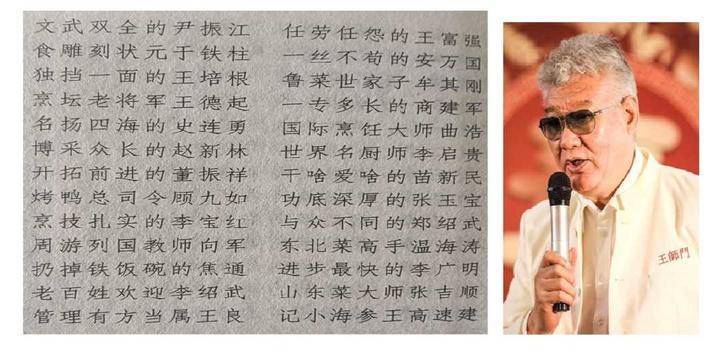 文武双全的尹振江
食雕刻状元于铁柱
独挡一面的王培根
烹坛老将军王德起
名扬四海的史连勇
博采众长的赵新林
开拓前进的董振祥
烤鸭总司令顾九如
烹技扎实的李宝红
周游列国教师向军
扔掉铁饭碗的焦通
老百姓欢迎李绍武
管理有方当属王良
任劳任怨的王富强
一丝不苟的安万国
鲁菜世家子车其刚
一专多长的商建军
国际烹饪大师曲浩
世界名厨师李启贵
干啥爱啥的苗新民
功底深厚的张玉宝
与众不同的郑绍武
东北菜高手温海涛
进步最快的李广明
山东菜大师张吉顺
记小海参王高速建
王師門